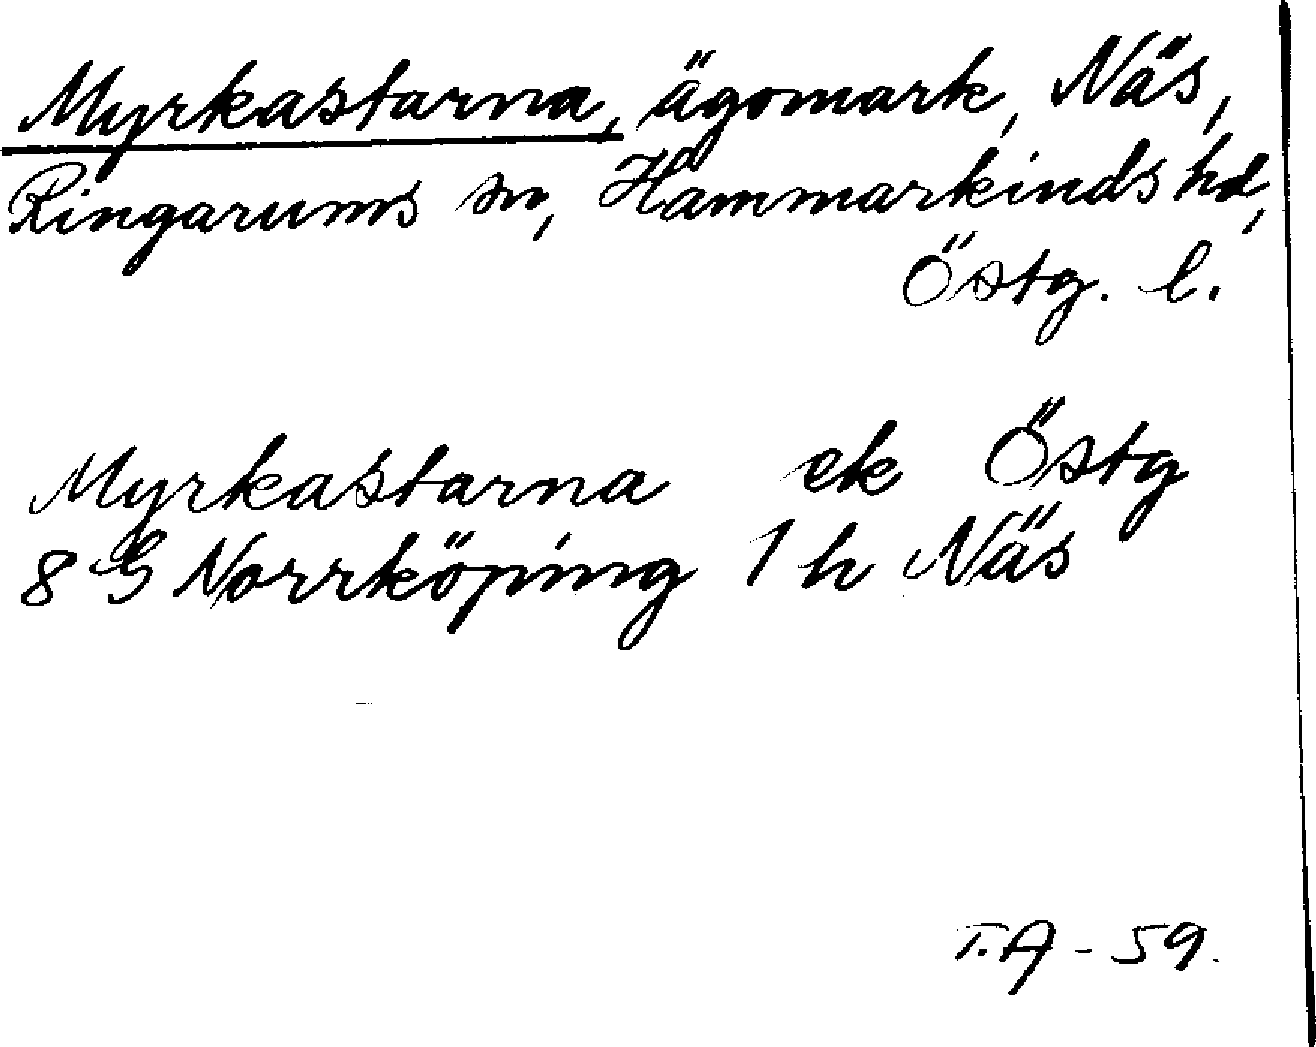 Myrkastarna, ägomark, Näs,
Ringarums sn, Hammarkinds hd,
Östg. l.
Myrkastarna ek Östg
8 G Norrköping 1 h Näs
T.A - 59.